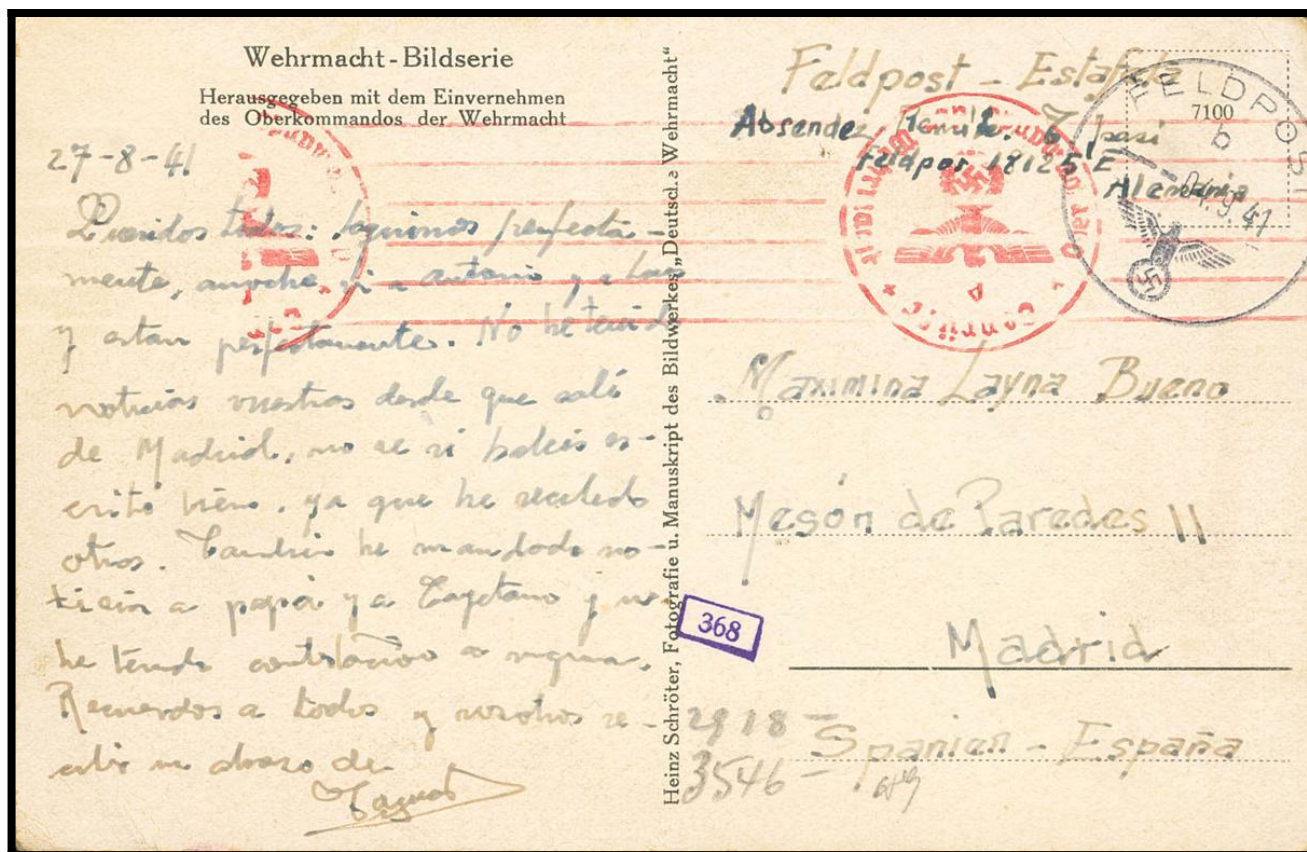 Wehrmacht-Bildserie
Herausgegeben mit dem Einvernehmen
des Oberkommandos der Wehrmacht
27-8-41
Queridos todos: seguimos perfecta-
mente, anoche vi a Antonio y a
y estan perfectamente. No he tenido
noticias vuestras desde que salí
de Madrid, no se si habeis es-
crito bien, ya que he recibido
otras. Tambien he mandado no-
ticias a papá y a Cayetano y no
he tenido contestación a ninguna.
Recuerdos a todos y vosotros re-
cibir un abrazo de
Heinz Schröter, Fotografie u. Manuskript des Bildwerkes „Deutsche Wehrmacht"
Feldpost - Estafeta
Absender Remite:
Feldpos 18125 E
Alemania
FELDPOST
7100
b
04.9.41
Maximina Layna Bueno
Mesón de Paredes 11
Madrid
Spanien - España
368
2918 -
3546 -